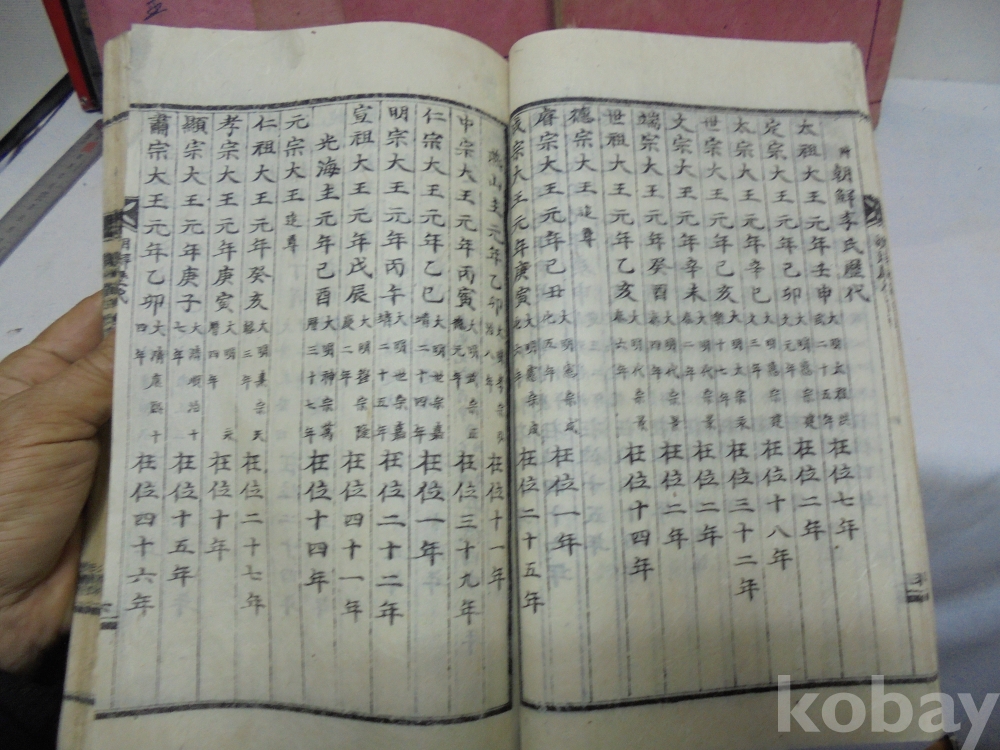 五
附 朝鮮李氏歷代
太祖大王元年壬申 大明太祖洪武二十五年 在位七年
定宗大王元年己卯 大明惠宗建文元年 在位二年
太宗大王元年辛巳 大明惠宗建文三年 在位十八年
世宗大王元年己亥 大明太宗永樂十七年 在位三十二年
文宗大王元年辛未 大明代宗景泰二年 在位二年
端宗大王元年癸酉 大明代宗景泰四年 在位二年
世祖大王元年乙亥 大明代宗景泰六年 在位十四年
德宗大王 追尊
睿宗大王元年己丑 大明憲宗成化五年 在位一年
成宗大王元年庚寅 大明憲宗成化六年 在位二十五年
燕山主元年乙卯 大明孝宗弘治八年 在位十一年
中宗大王元年丙寅 大明武宗正德元年 在位三十九年
仁宗大王元年乙巳 大明世宗嘉靖二十四年 在位一年
明宗大王元年丙午 大明世宗嘉靖二十五年 在位二十二年
宣祖大王元年戊辰 大明穆宗隆慶二年 在位四十一年
光海主元年己酉 大明神宗萬曆三十七年 在位十四年
元宗大王 追尊
仁祖大王元年癸亥 大明熹宗天啓三年 在位二十七年
孝宗大王元年庚寅 大明 元曆四年 在位十年
顯宗大王元年庚子 大清順治十七年 在位十五年
肅宗大王元年乙卯 大清康熙十四年 在位四十六年
kobay